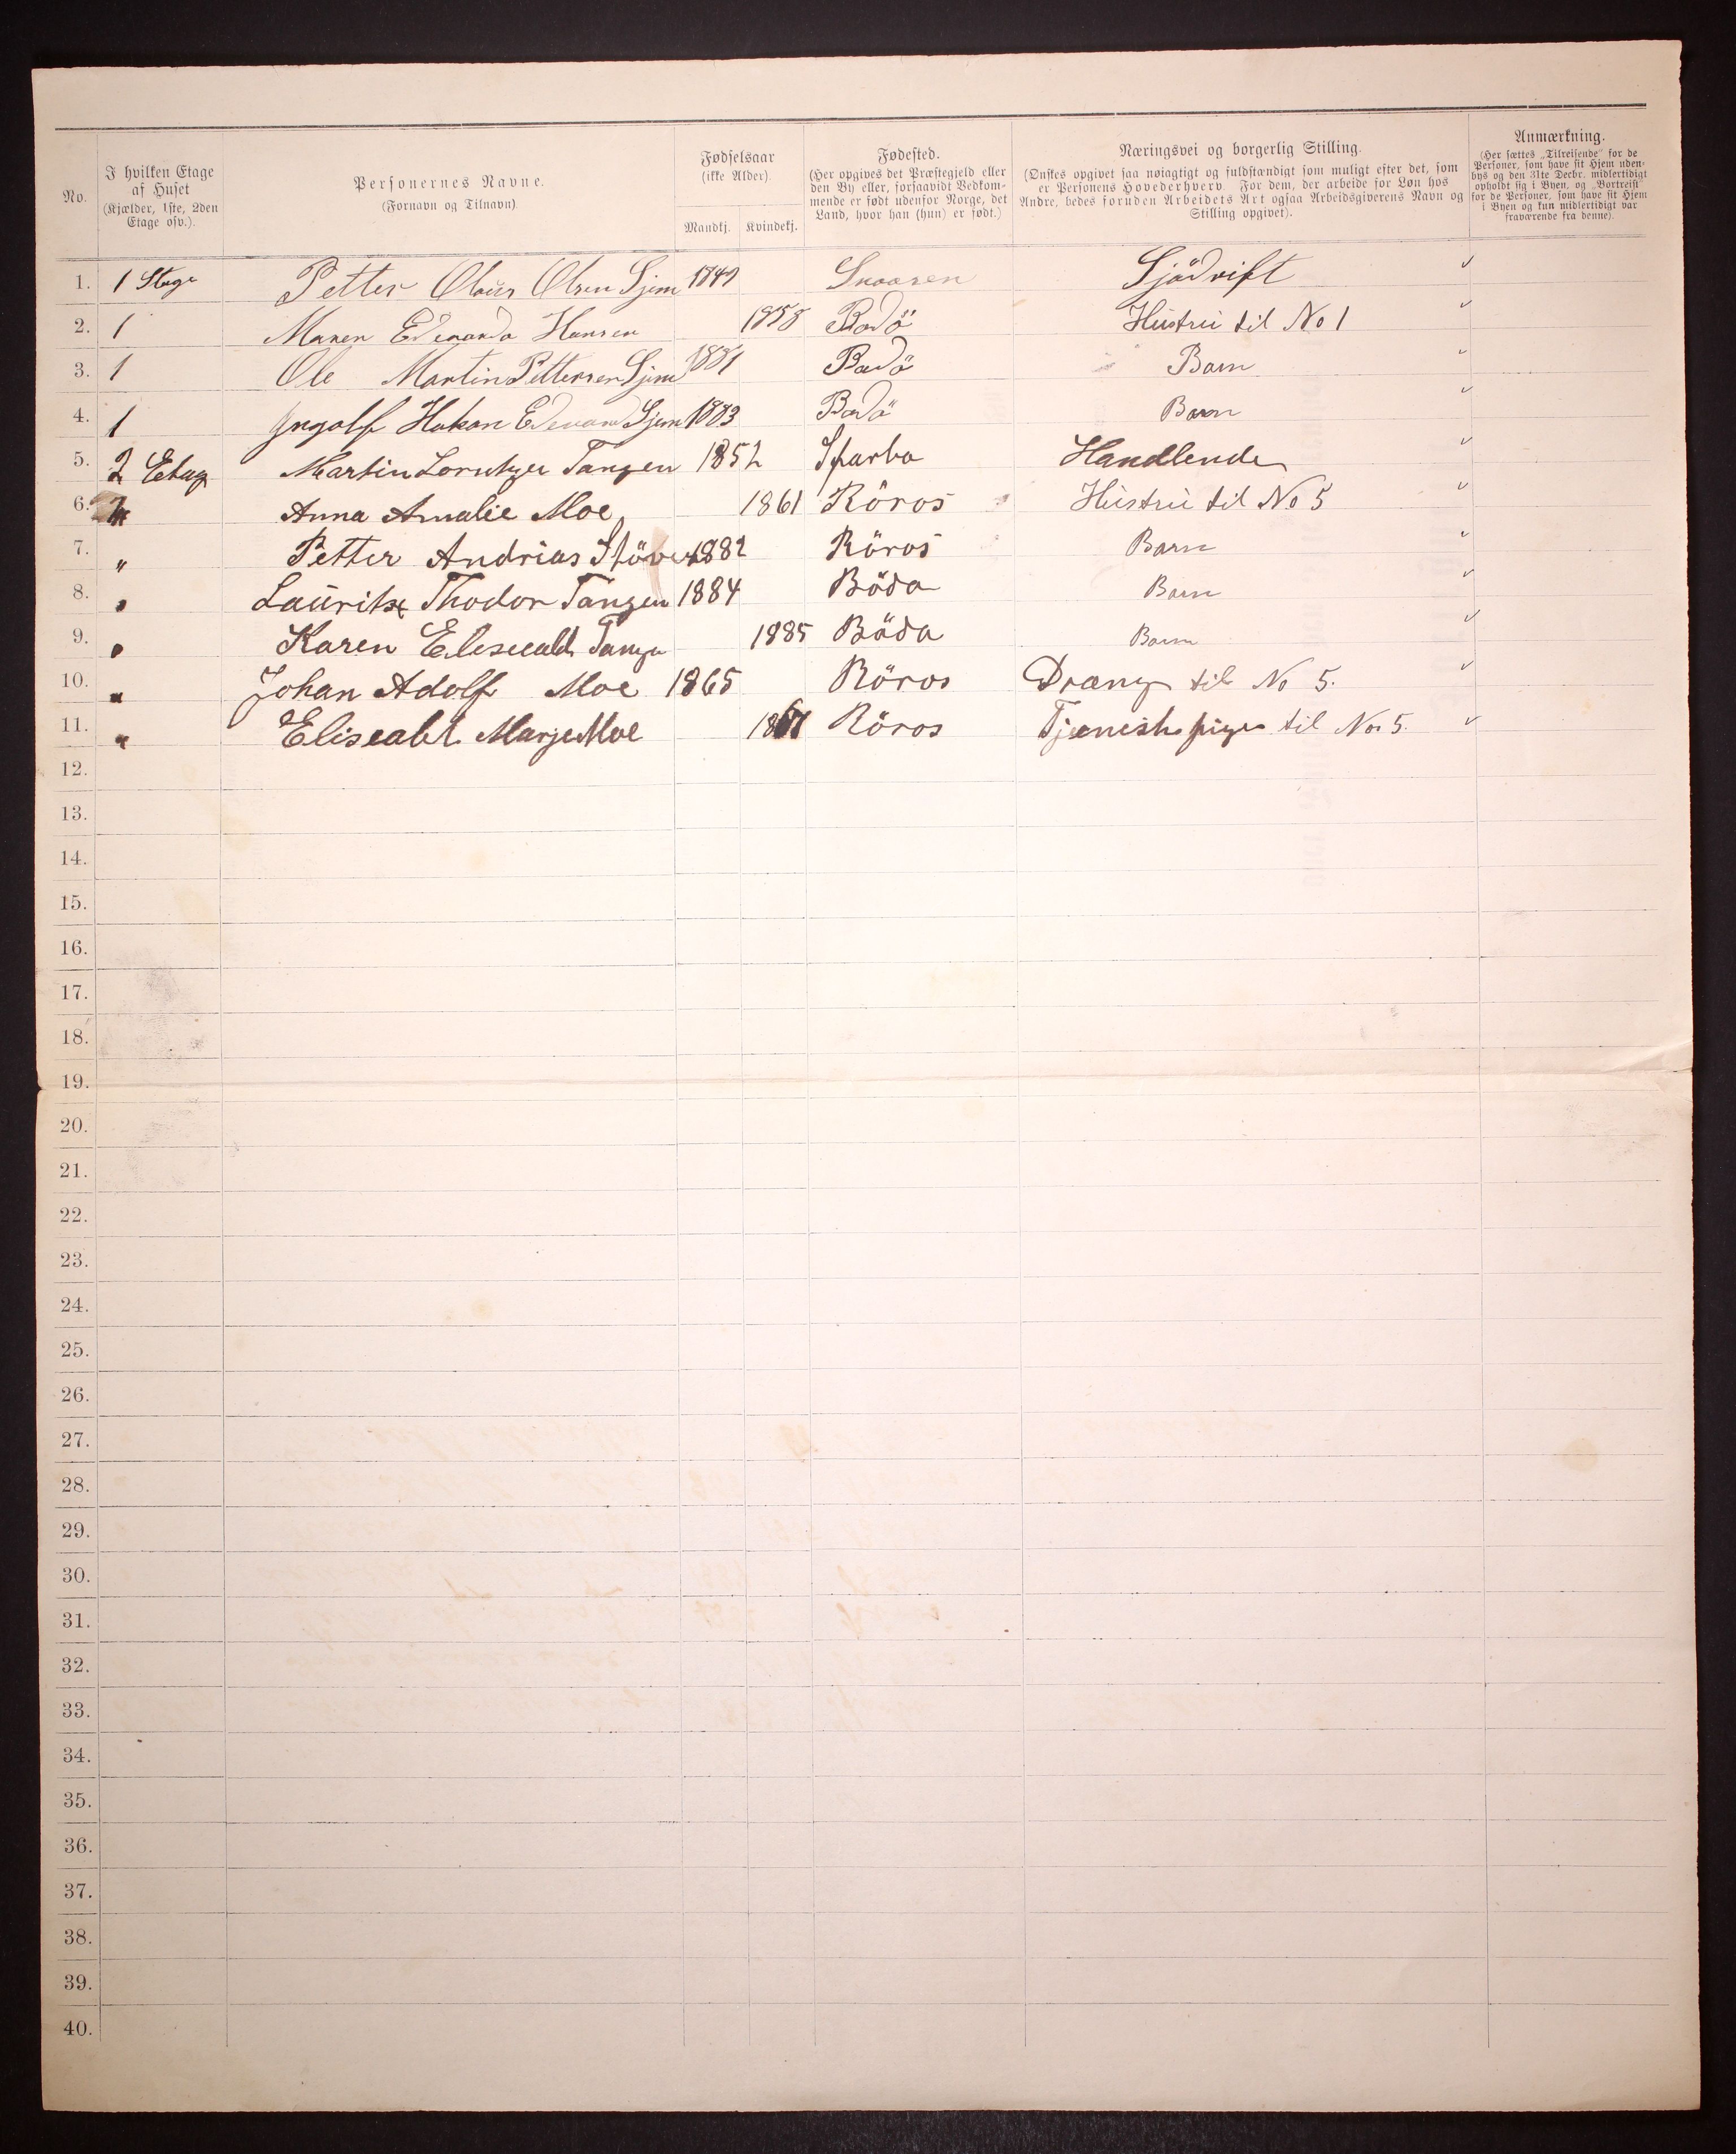 No.
I hvilken Etage
af Huset
(Kjælder, 1ste, 2den
Etage osv.).
Personernes Navne.
(Fornavn og Tilnavn)
Fødselsaar
(ikke Alder).
Mandkj. Kvindekj.
Fødested.
(Her opgives det Præstegjeld eller
den By eller, forsaavidt Vedkom-
mende er født udenfor Norge, det
Land, hvor han (hun) er født.)
Næringsvei og borgerlig Stilling.
(Ønskes opgivet saa nøiagtigt og fuldstændigt som muligt efter det, som
er Personens Hovederhverv. For dem, der arbeide for Løn hos
Andre, bedes foruden Arbeidets Art ogsaa Arbeidsgiverens Navn og
Stilling opgivet).
Anmærkning.
(Her sættes „Tilreisende“ for de
Personer, som have sit Hjem uden-
bys og den 31te Decbr. midlertidigt
opholdt sig i Byen, og „Bortreist“
for de Personer, som have sit Hjem
i Byen og kun midlertidigt var
fraværende fra denne).
1. 1 Petter Olaus Olsen Sjem Snaasen Sjödrift
2. 1 Maren Edevarda Hansen 1858 Bodö Hustru til No 1
3. 1 Ole Martin Pettersen Sjem 1881 Bodö Barn
4. 1 Ingolf Hakon Edevard Sjem 1883 Bodö Barn
5. 2 Etag Martin Tangen 1852 Sparbo Handlende
6. Anna Amalie Moe 1861 Röros Hustru til No 5
7. " Petter Andrias 1882 Röros Barn
8. " Lauritz Thodor Tangen 1884 Bödø Barn
9. " Karen 1885 Bödø Barn
10. " Johan Adolf Moe 1865 Röros Dreng til No 5.
11. " Eliseabt Marje Moe Röros Tjenestepige til No 5.
12.
13.
14.
15.
16.
17.
18.
19.
20.
21.
22.
23.
24.
25.
26.
27.
28.
29.
30.
31.
32.
33.
34.
35.
36.
37.
38.
39.
40.